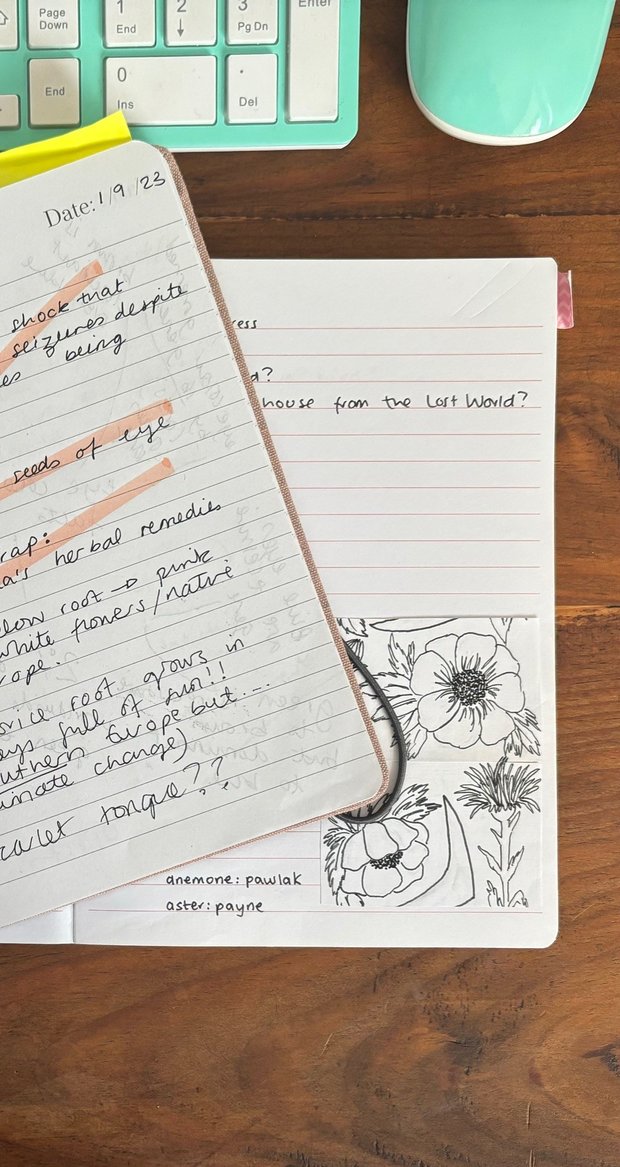 Page
Down
1
End
2
↓
3
Pg Dn
Enter
End
0
Ins
.
Del
Date: 1/9/23
shock that
seizures despite
being
seeds of eye
rap:
a's herbal remedies
low root → pink
white flowers/native
ope.
rice root grows in
ays full of sun!!
uthern Europe but...
imate change)
carlet tongue??
ress
d?
house from the Lost World?
anemone: pawlak
aster: payne